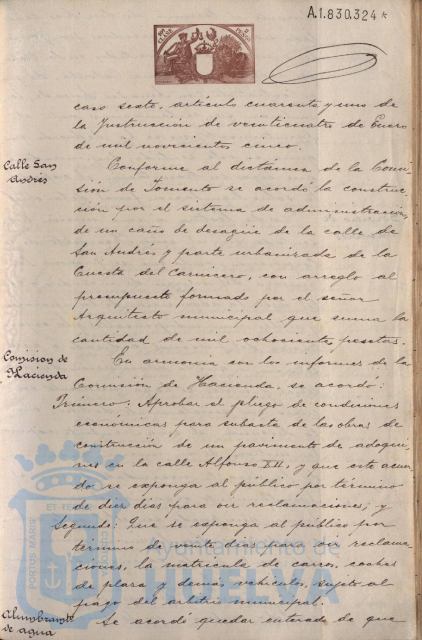 A.1.830.324*
caso sesto, artículo cuarenta y uno de
la Instrucción de veinticuatro de Enero
de mil novecientos cinco.
Calle San
Andrés
Conforme al dictámen de la Comi-
sión de Fomento se acordó la construc-
ción por el sistema de administración,
de un caño de desagüe de la calle de
San Andrés y parte urbanizada de la
Cuesta del Carnicero, con arreglo al
presupuesto formado por el señor
Arquitecto municipal que suma la
cantidad de mil ochocientas pesetas.
Comision de
Hacienda
En armonia con los informes de la
Comisión de Hacienda, se acordó:
Primero: Aprobar el pliego de condiciones
económicas para subasta de las obras de
construcción de un pavimento de adoqui-
nes en la calle Alfonso XII, y que este acuer-
do se exponga al público por término
de diez dias para oir reclamaciones; y
Segundo: Que se exponga al público por
término de veinte dias para oir reclama-
ciones, la matrícula de carros, coches
de plaza y demás vehículos, sujeto al
pago del arbitrio municipal.
Alumbramto
de agua
Se acordó quedar enterado de que
PORTUS MARIS
Ayuntamiento de
HUELVA